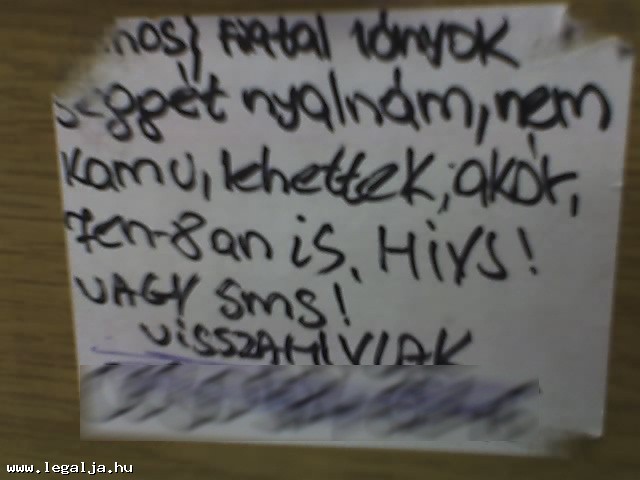 FIATAL lányok
seggét nyalnám, nem
kamu, lehettek, akár,
7en-8an is, HiVJ!
VAGY SMS!
ViSSZAHiVLAK
www.legalja.hu